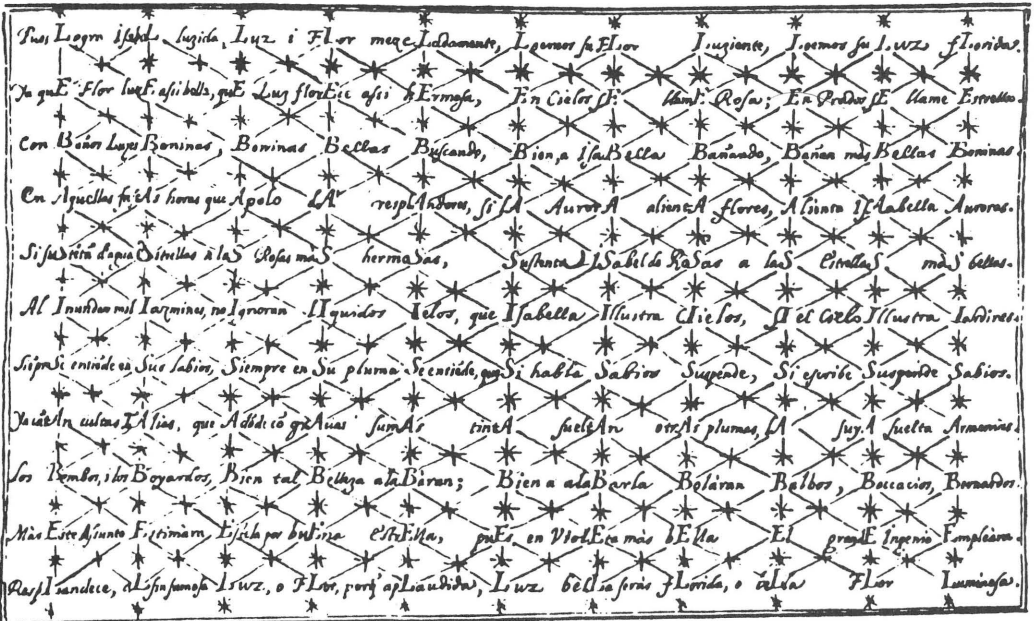 Pues Logra Isabel luzida, Luz i FLor mezcLadamente, Loemos su FLor Luziente, Loemos su Luz fLorida.
Ya quE Flor luzE asi bella, quE Luz florEce asi hErmosa, En Cielos sE llamE Rosa; En Prados sE llame Estrella.
Con Baños Luzes Boninas, Boninas Bellas Buscando, Bien, a IsaBella Bañando, Bañan màs Bellas Boninas.
En Aquellas horas que Apolo dA resplAndores, si LA AurorA alientA flores, Alienta ISAbella Auroras.
Si a laS Rosas maS hermoSas, Sustenta ISabel de RoSas a laS EstrellaS màS bellas.
Al Inundar mil Iazmines, no Ignoran lIquidos Ielos, que Isabella Illustra CIelos, sI el CIelo Illustra Iardines.
Siẽpre Se entiẽde en Sus labios, Siempre en Su pluma Se entiẽde, que Si habla Sabios Suspende, Si escribe Suspende Sabios.
cultas ITAlias, que Adõde cõ grAues sumAs tintA sueltAn otrAs plumas, LA suyA suelta Armonias.
Los Bembos, i los Boyardos, Bien tal Belleza alaBaran; Bien a alabarla Boláran Balbos, Boccacios, Bernardos.
Màs Este Asunto Estimàra por buEna EstrElla, puEs, en ViolEta más bElla El grandE Ingenio Emplèara.
RespLandece, Luz, o FLor, porq̃ apLaudida, Luz beLLa seràs fLorida, o FLor Luminosa.